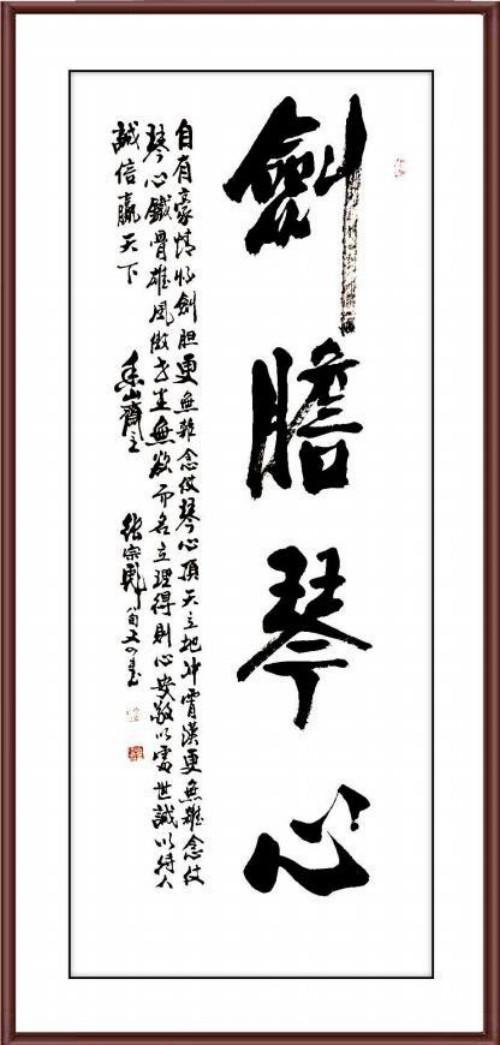 劍膽琴心
自有豪情怀劍胆更無雜念仗琴心頂天立地冲霄漢更無雜念仗
琴心鐵骨雄風傲無欲而名立理得則心安敬以處世誠以待人
誠信贏天下 山齋主 张宗自文书